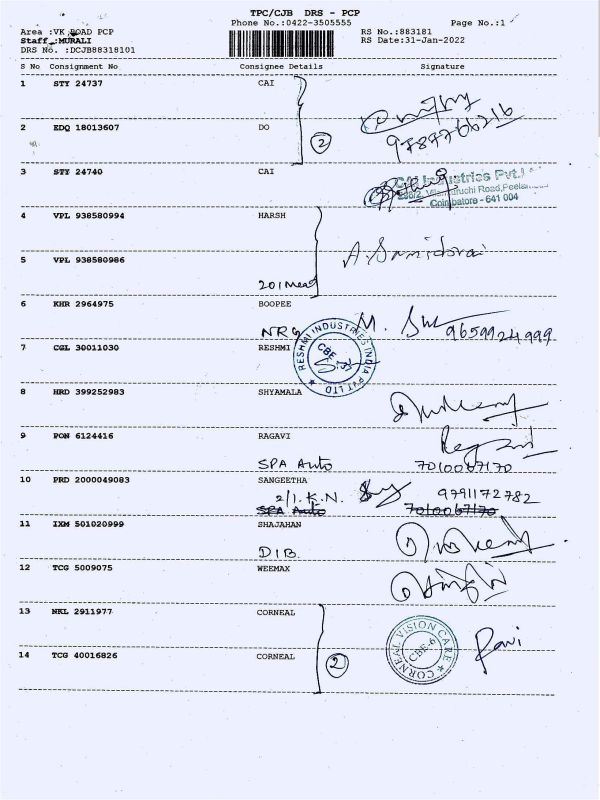 TPC/CJB DRS - PCP
Phone No.:0422-3505555
Page No.:1
Area :VK ROAD PCP
RS No.:883181
Staff :MURALI
RS Date:31-Jan-2022
DRS No. :DCJB88318101
S No Consignment No Consignee Details Signature
1 STY 24737 CAI
2 EDQ 18013607 DO
2
3 STY 24740 CAI
Industries Pvt.
Road, Peelamedu
Coimbatore - 641 004
4 VPL 938580994 HARSH
5 VPL 938580986
6 KHR 2964975 BOOPEE
NRG
M.
9659924999
7 CGL 30011030 RESHMI
RESHMI INDUSTRIES INDIA PVT LTD
CBE
8 HRD 399252983 SHYAMALA
9 PON 6124416 RAGAVI
SPA Auto
7010067170
10 PRD 2000049083 SANGEETHA
2/1.K.N.
9791172782
SPA Auto
7010067170
11 IXM 501020999 SHAJAHAN
DIB.
12 TCG 5009075 WEEMAX
13 NKL 2911977 CORNEAL
CORNEAL VISION CARE
CBE-6
Ravi
14 TCG 40016826 CORNEAL
2